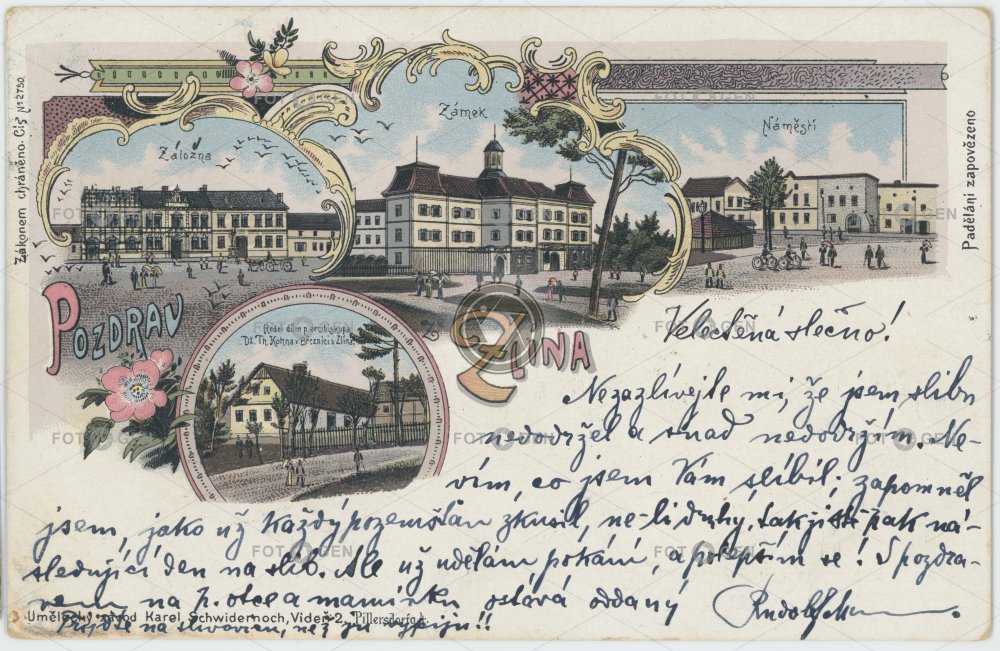 Zákonem chráněno. Čís No 2730.
Záložna
Zámek
Náměstí
Padělání zapovězeno
POZDRAV
ZE ZLINA
Rodní dům p. arcibiskupa
Dr. Th. Kohna v Březnici u Zlína.
Velectěná slečno!
Nezazlívejte mi, že jsem slibu
nedodržel a snad nedodržím. Ne-
vím, co jsem Vám slíbil; zapomněl
jsem, jako už každý pozemšťan zkusil, ne-li druhý, tak jistě pak ná-
sledující den na slib. Ale už udělám pokání, a polepším se! S pozdra-
vem na p. otce a maminku ostává oddaný Rudolf
Umělecký závod Karel Schwidernoch, Vídeň-2, Pillersdorfg.
na slivovicu, než ju vypiju!!
FOTOGEN